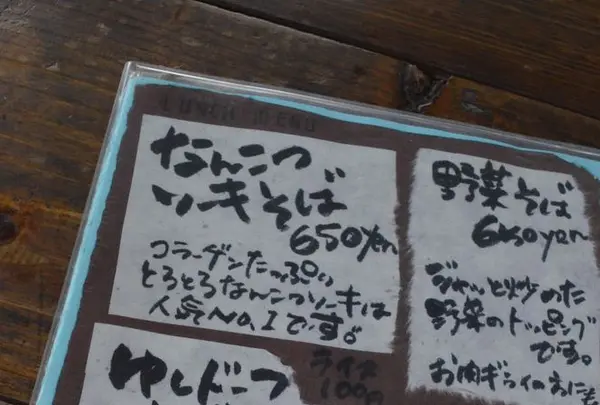 LUNCH MENU
なんこつ
ソーキそば
650yen
コラーゲンたっぷり
とろとろなんこつソーキは
人気No.1です。
野菜そば
650yen
ジャッと炒めた
野菜のトッピング
です。
お肉ギライの方にも
ゆしドーフ
ライス
100円